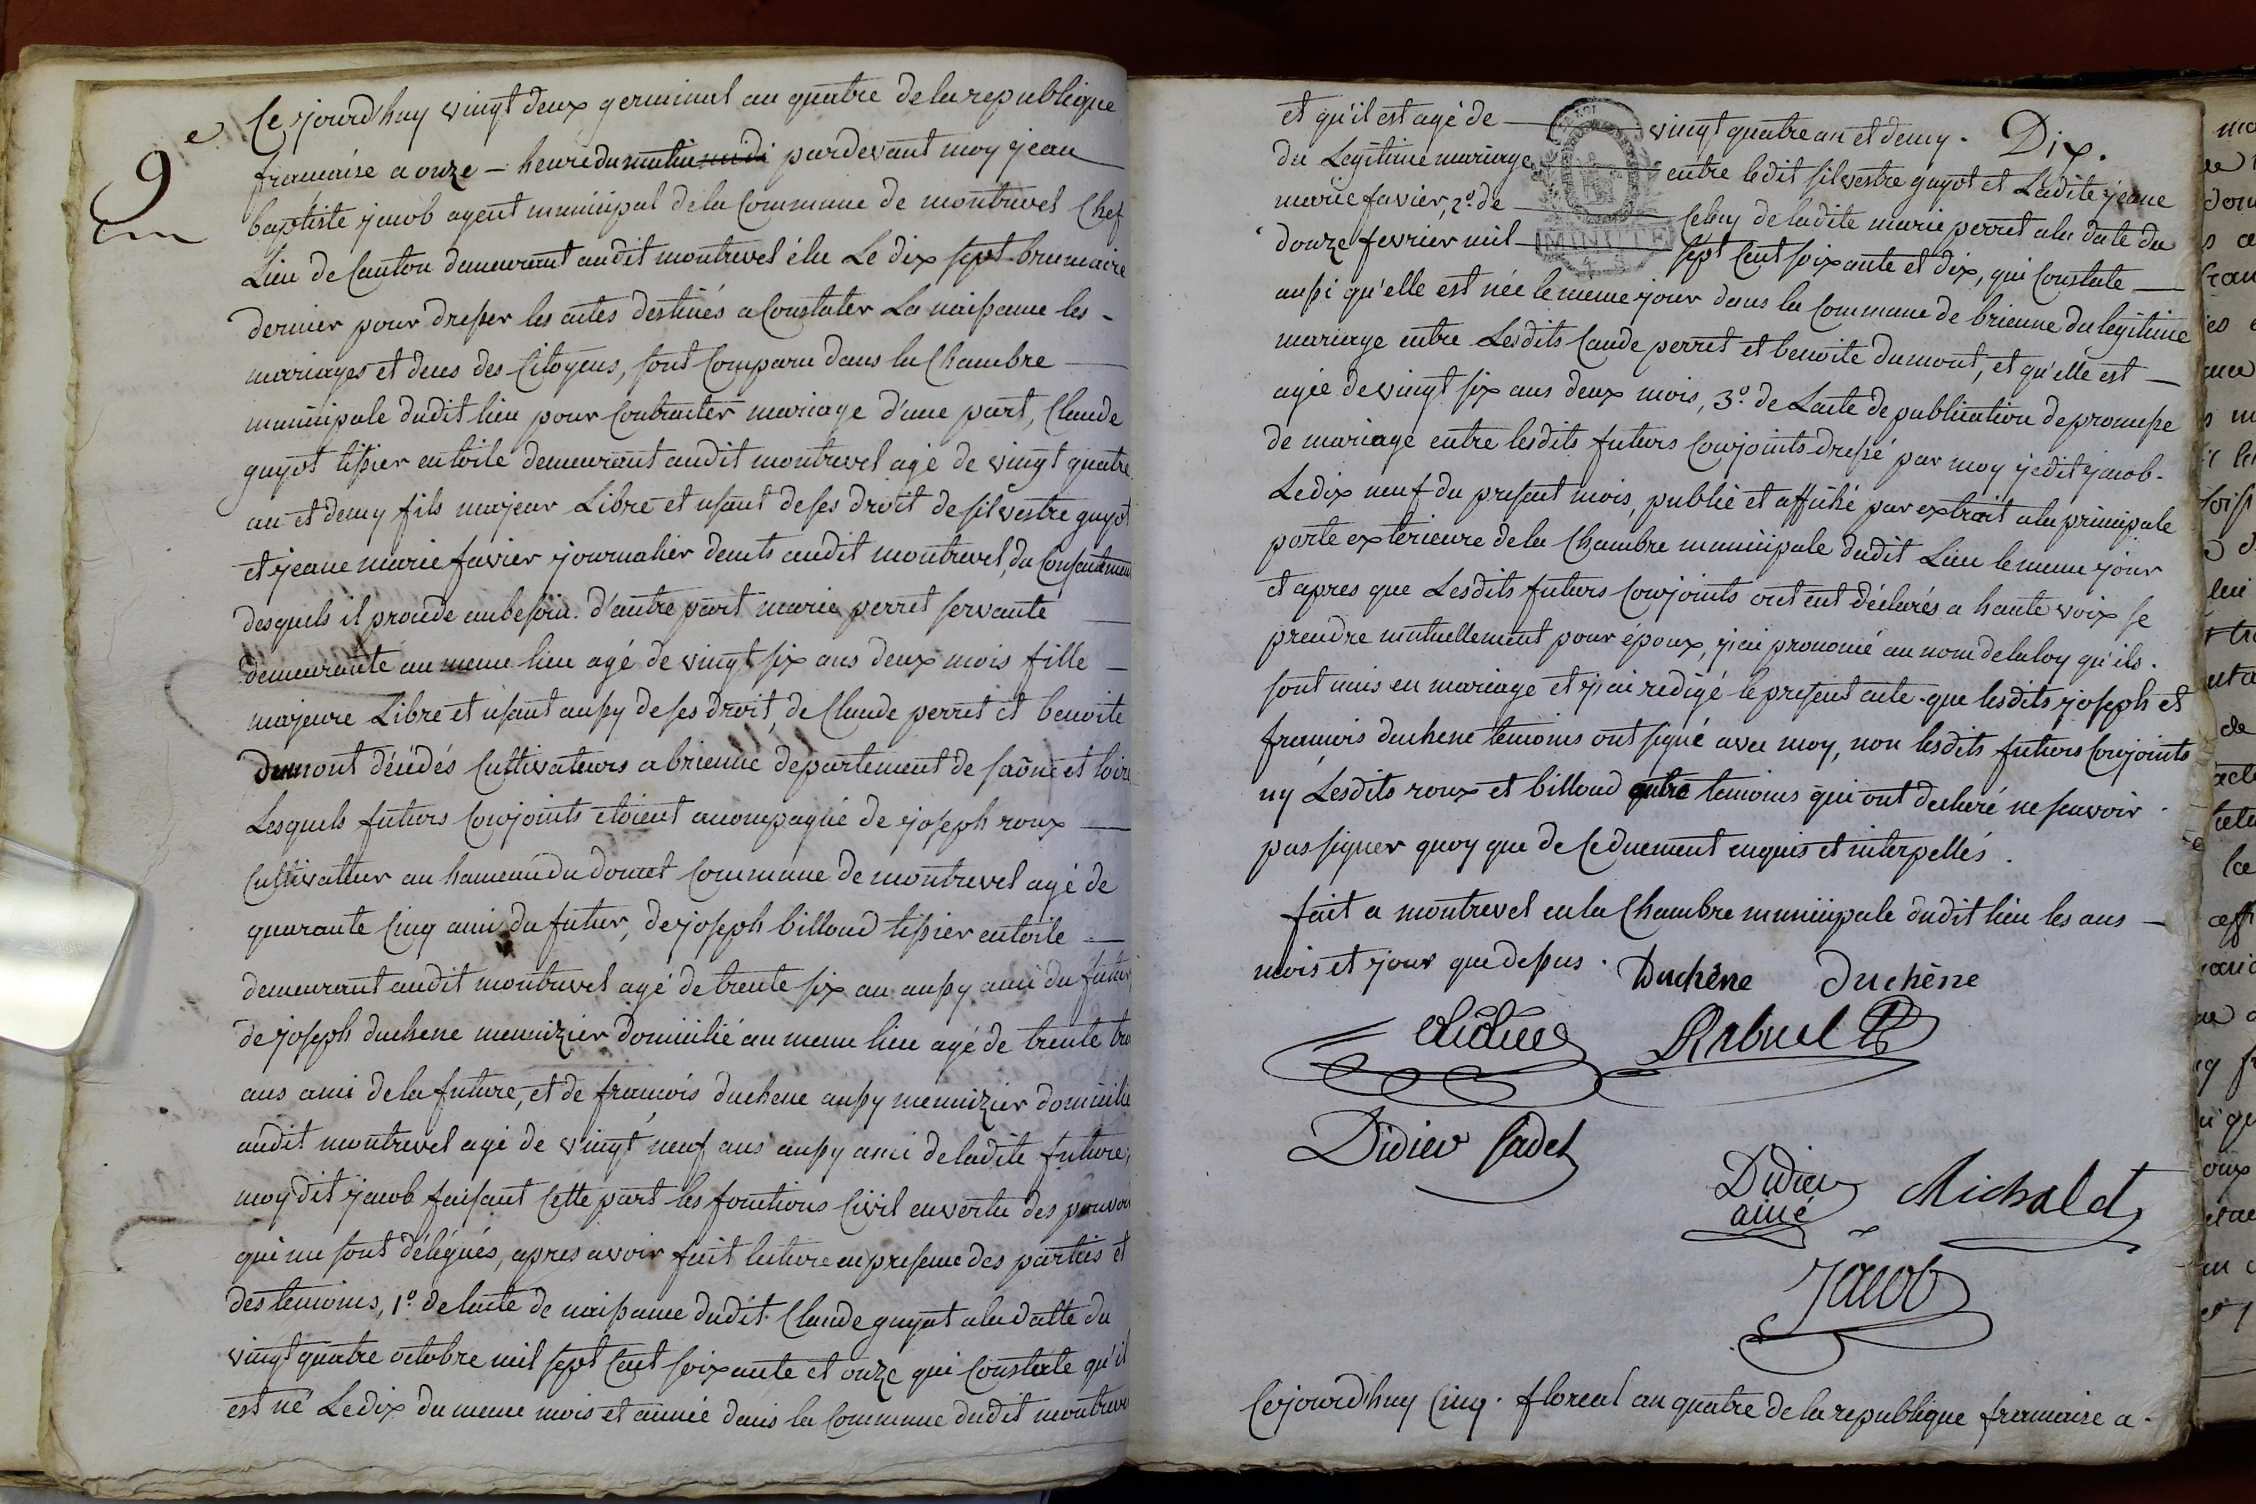 9e
m
Ce jourd'huy vingt deux germinal an quatre de la republique
francaise a onze – heure du matin pardevant moy jean
baptiste jacob agent municipal de la Commune de montrevel Chef
Lieu de Canton demeurant audit montrevel élu Le dix sept brumaire
dernier pour dresser les actes destinés a Constater La naissance les –
mariages et deces des Citoyens, sont Comparu dans la Chambre
municipale dudit lieu pour Contracter mariage d'une part, Claude
guyot tissier en toile demeurant audit montrevel agé de vingt quatre
an et demy fils majeur Libre et usant de ses droit de silvestre guyot
et jeane marie favier journalier demts audit montrevel, du Consentement
desquels il procede au besoin. d'autre part marie perret servante
demeurante au meme lieu agé de vingt six ans deux mois fille –
majeure Libre et usant aussy de ses droit, de Claude perret et benoite
dumont décédés Cultivateurs a brienne departement de saône et loire
Lesquels futurs Conjoints etoient acompagné de joseph roux
Cultivateur au hameau du doucet Commune de montrevel agé de
quarante Cinq ami du futur, de joseph billoud tissier en toile
demeurant audit montrevel agé de trente six an aussy ami du futur
de joseph duchene menuizier domicilié au meme lieu agé de trente tro
ans ami de la future, et de francois duchene aussy menuizier domicilié
audit montrevel agé de vingt neuf ans aussy ami de ladite future,
moy dit jacob faisant Cette part les fonctions Civil en vertu des pouvoi
qui me sont délégués, apres avoir fait lecture en presence des parties et
des temoins, 1º. de lacte de naissance dudit Claude guyot a la datte du
vingt quatre octobre mil sept Cent soixante et onze qui Constate qu'il
est né Le dix du meme mois et année dans la Commune dudit montreve
et qu'il est agé de vingt quatre an et demy. Dix.
du Legitime mariage entre ledit silvestre guyot et Ladite jeane
marie favier, 2º. de Celuy de ladite marie perret a la date du
MINUTE
douze fevrier mil sept Cent soixante et dix, qui Constate
aussi qu'elle est née le meme jour dans la Commune de brienne du legitime
mariage entre Lesdits Caude perret et benoite dumont, et qu'elle est
agée de vingt six ans deux mois, 3º. de Lacte de publication de promesse
de mariage entre lesdits futurs Conjoints dressé par moy jedit jacob.
Le dix neuf du present mois, publié et affiché par extrait a la principale
porte exterieure de la Chambre municipale dudit Lieu le meme jour
et apres que Lesdits futurs Conjoints ont eut déclarés a haute voix se
prendre mutuellement pour époux, jai prononcé au nom de la loy qu'ils.
sont unis en mariage et j'ai redigé le present acte que lesdits joseph et
francois duchene temoins ont signé avec moy, non lesdits futurs Conjoints
ny Lesdits roux et billoud autre temoins qui ont declaré ne scavoir
pas signer quoy que de Ce duement enquis et interpellés.
fait a montrevel en la Chambre municipale dudit lieu les ans –
mois et jour que dessus. Duchêne Duchêne
Rabuel
Didier Cadet
Didier
ainé Michalet
Jacob
Cejourd'huy Cinq. floreal an quatre de la republique francaise a.